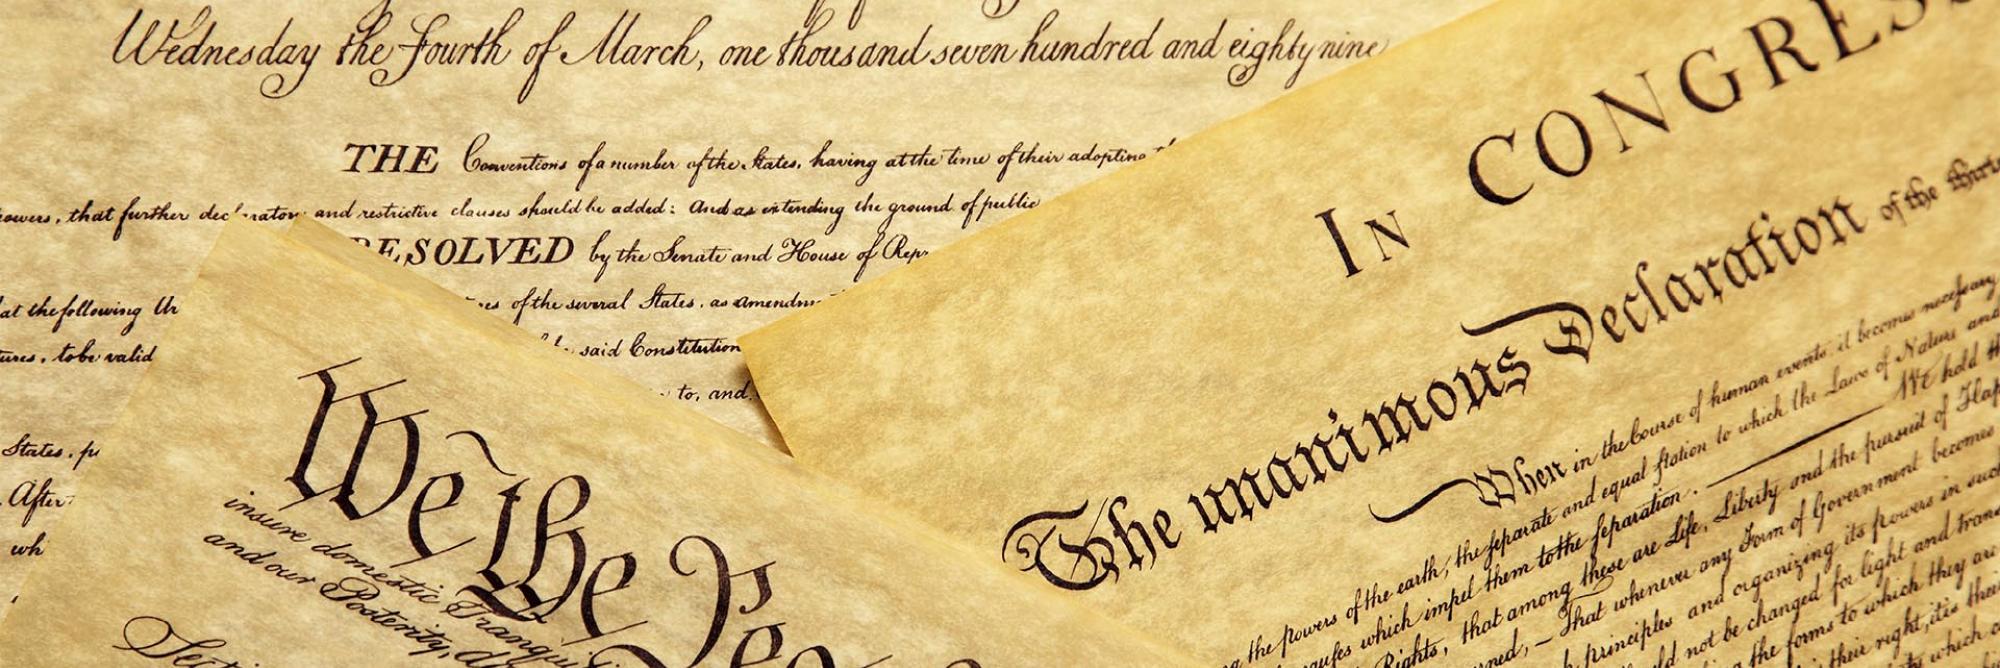 Wednesday the Fourth of March, one thousand seven hundred and eighty nine
THE Conventions of a number of the States, having at the time of their adopting
that further and restrictive clauses should be added: And as extending the ground of public
RESOLVED by the Senate and House of
of the several States, as
said Constitution
to, and
the following
to be valid
States,
After
We the
insure domestic
and our Posterity,
IN CONGRESS
The unanimous Declaration of the
When in the Course of human events, it becomes necessary
the powers of the earth, the separate and equal station to which the Laws of Nature and
which impel them to the separation. We hold
Rights, that among these are Life, Liberty and the pursuit of
That whenever any Form of Government becomes
principles and organizing its powers in such
not be changed for light and
the forms to which they are
their right, it is their
which